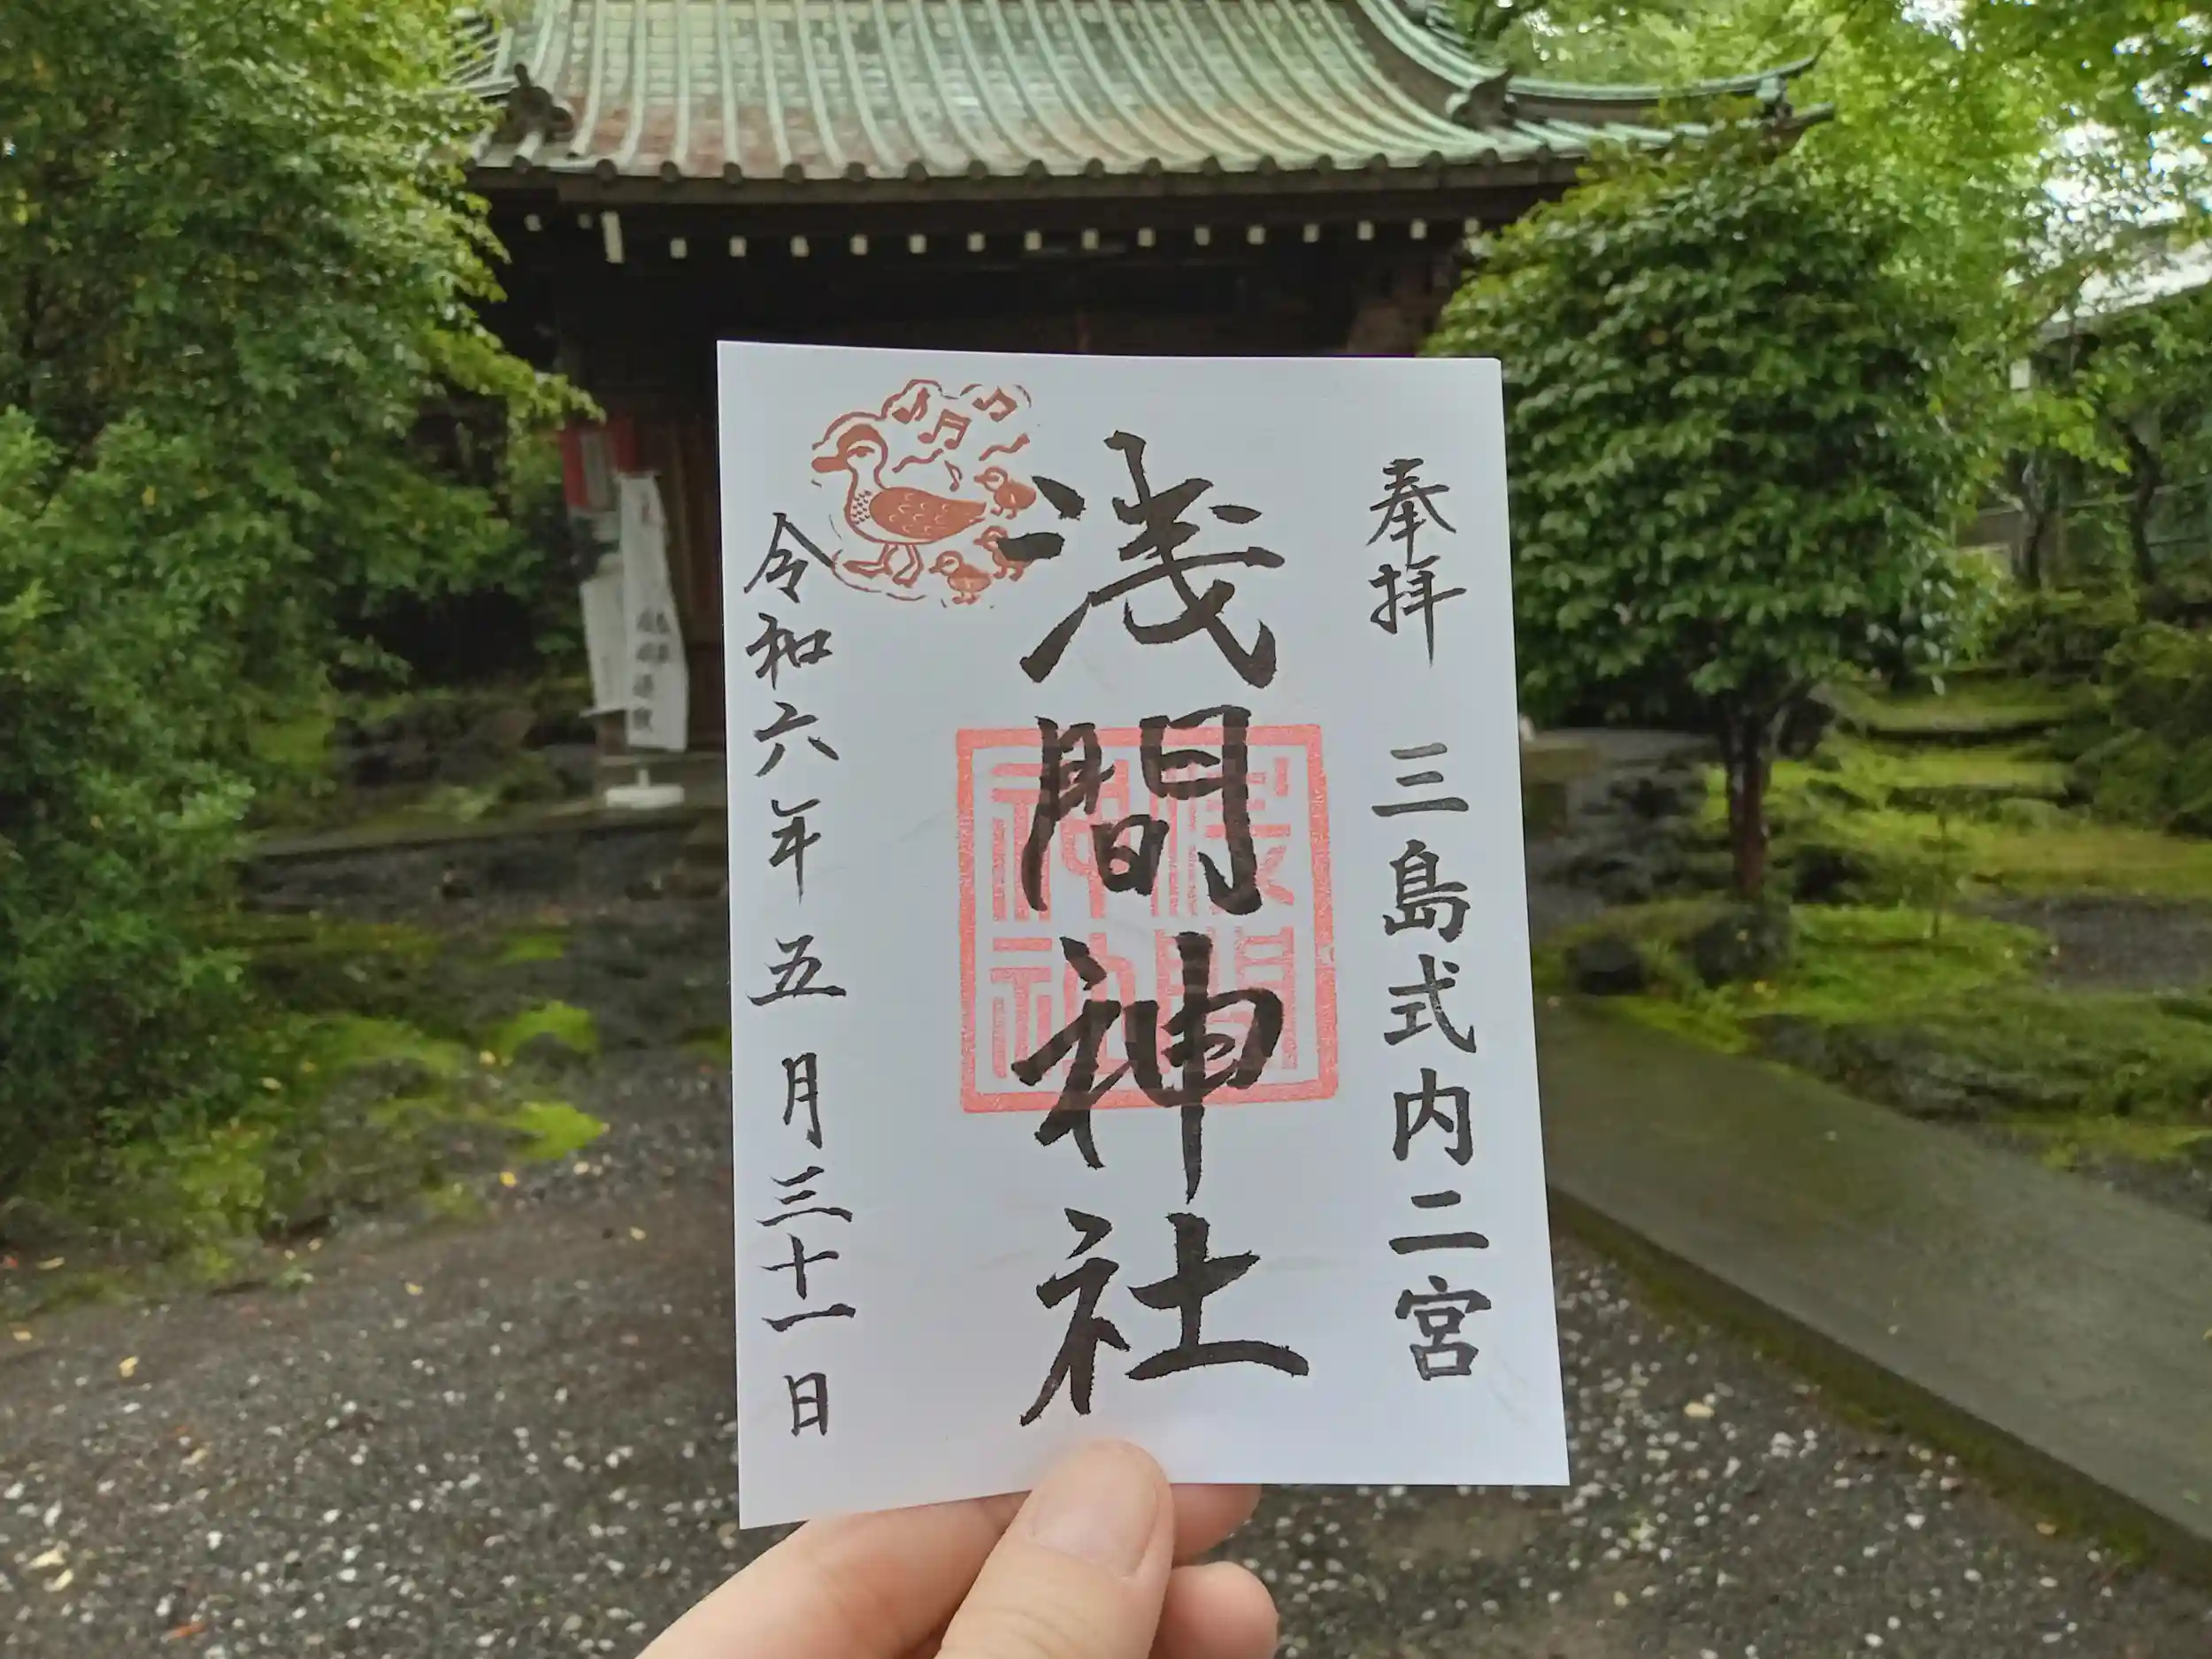 奉拝 三島式内二宮
浅間神社
令和六年五月三十一日